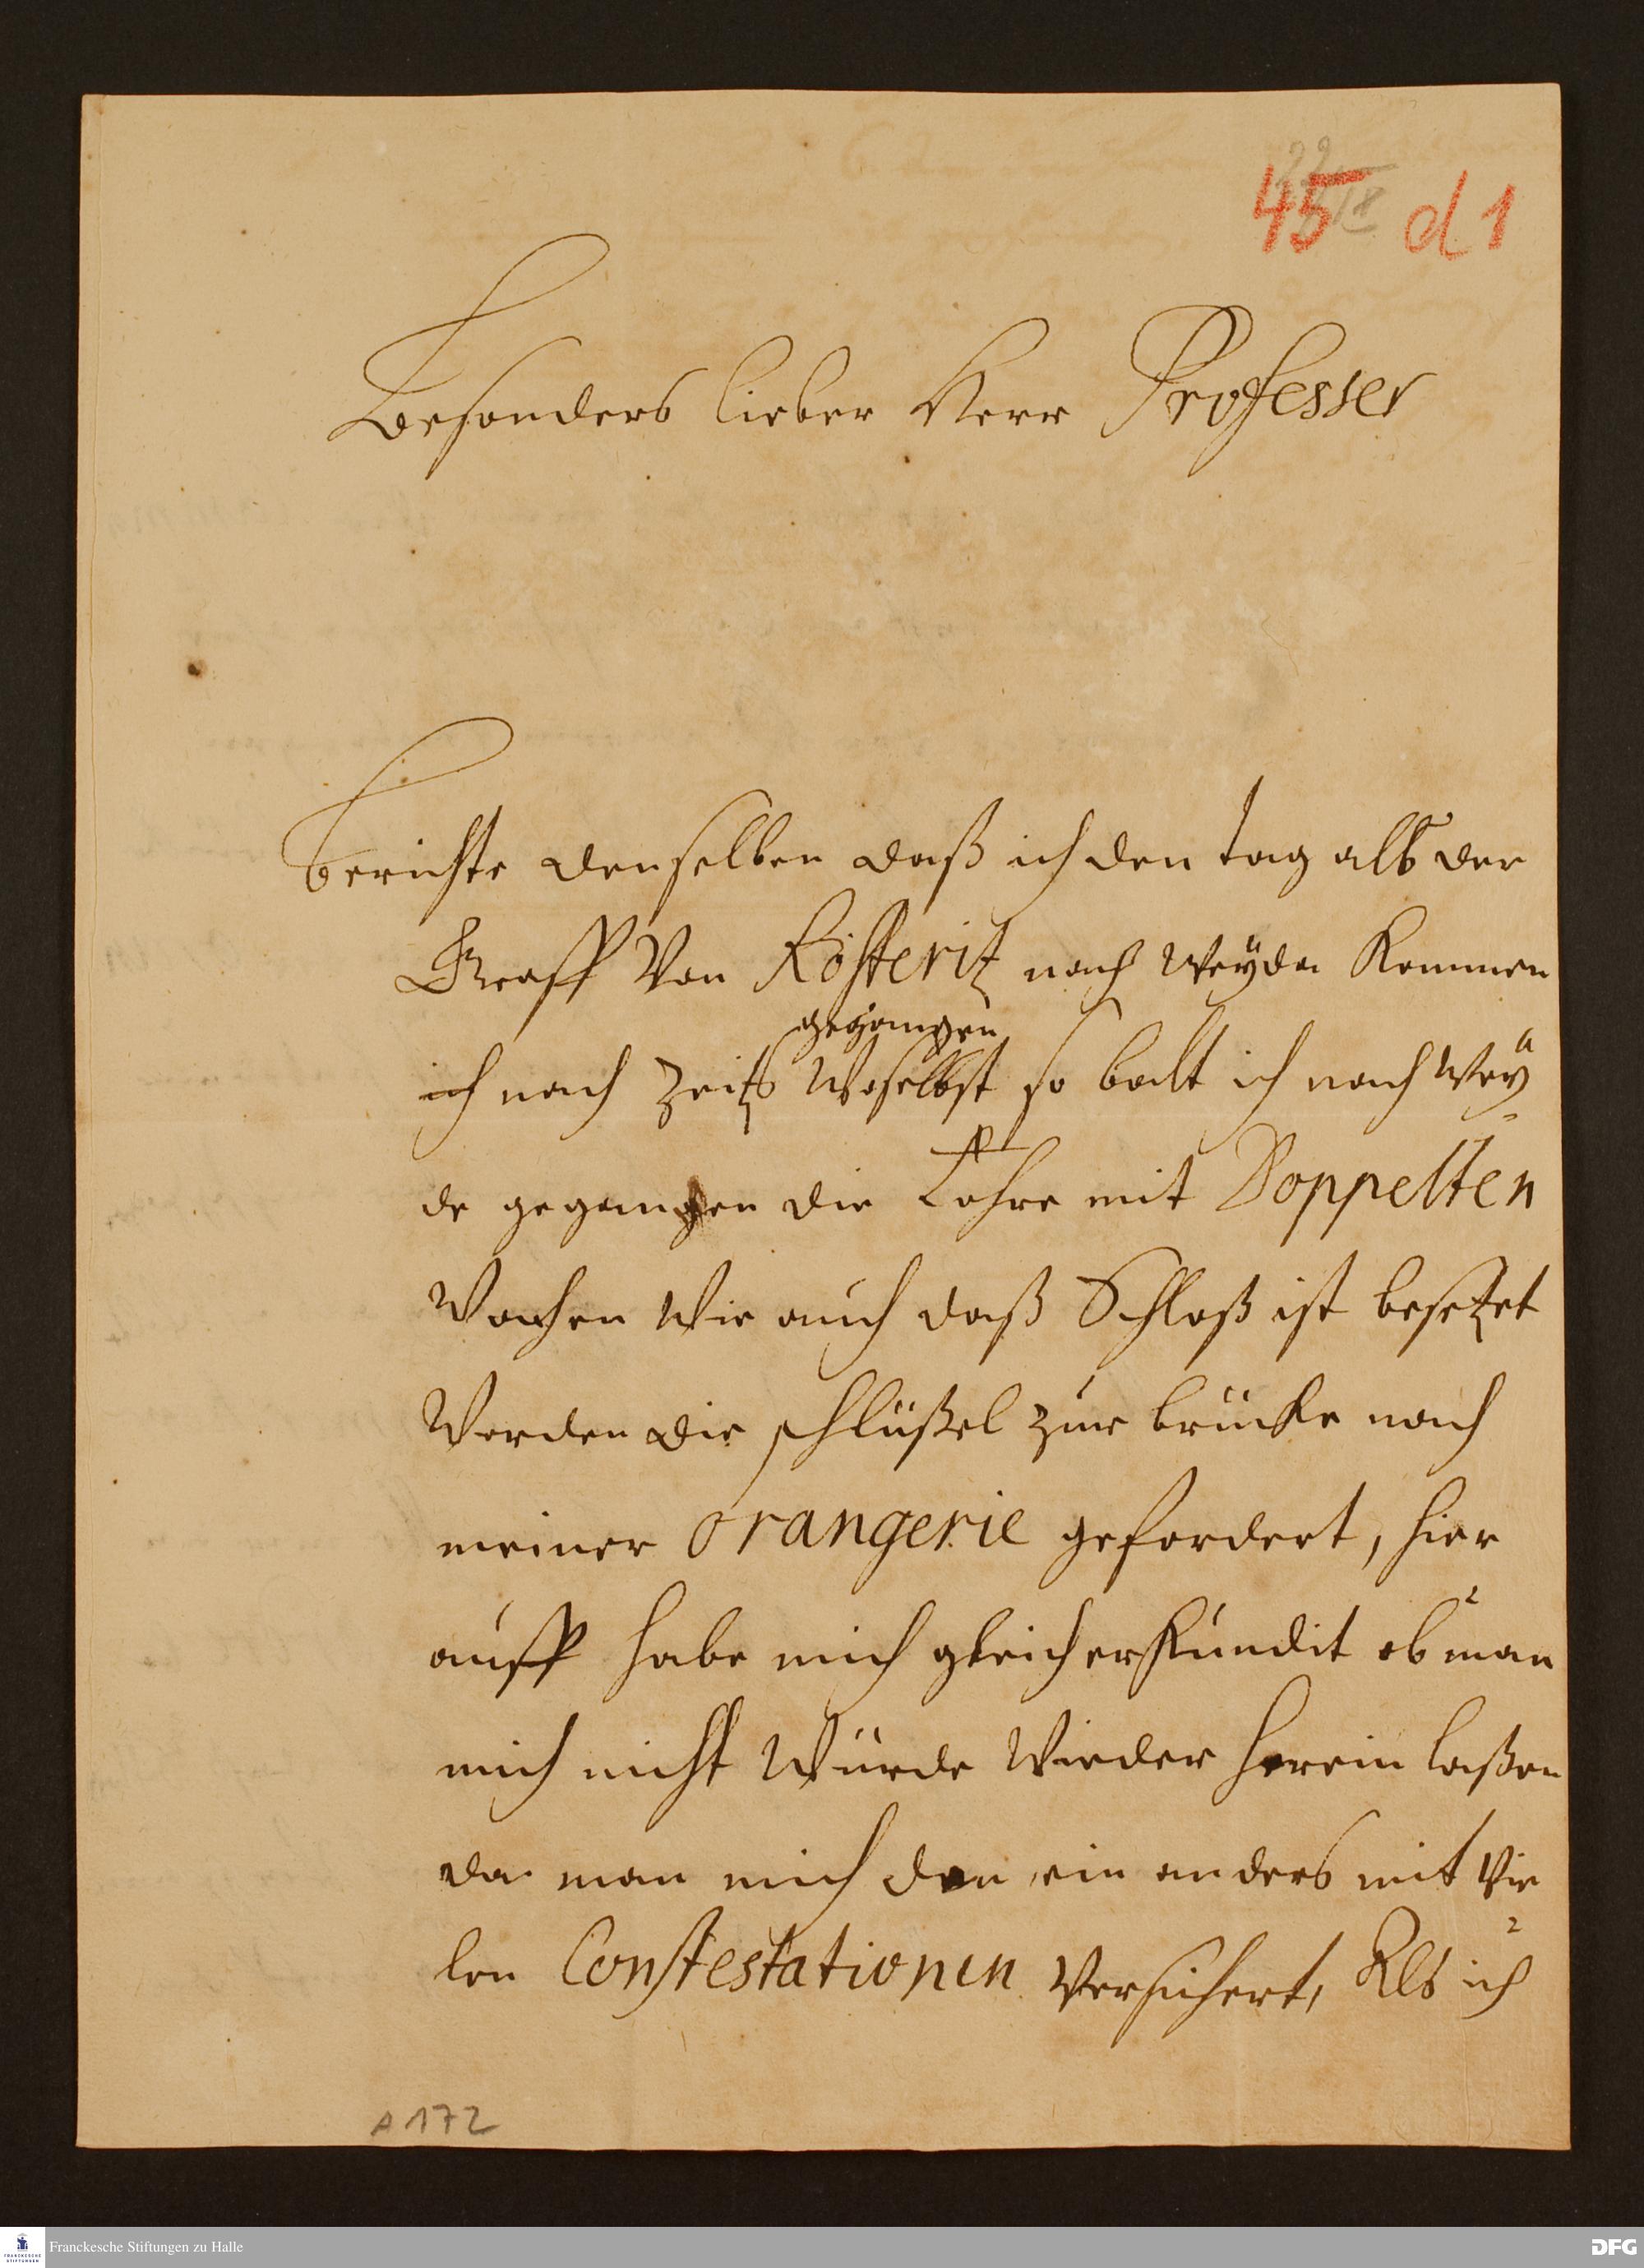 45 d 1
Besonders lieber Herr Professer
Berichte denselben daß ich den tag alß der
Graff Von Kösteritz nach Weyda kommen
gegangen
ich nach Zeitz Woselbst so balt ich nach Weÿ
de gegangen die Thore mit Doppelten
Wachen Wie auch daß Schloß ist besetzet
Worden die schlüßel zur brücke nach
meiner orangerie gefordert, hier
auff habe mich gleich erkundit ob man
mich nicht Würde Wieder herein laßen
da man mich den ein anders mit Vie
len Constestationen Versichert, Alß ich
A 172
Franckesche Stiftungen zu Halle
FRANCKESCHE
STIFTUNGEN
DFG